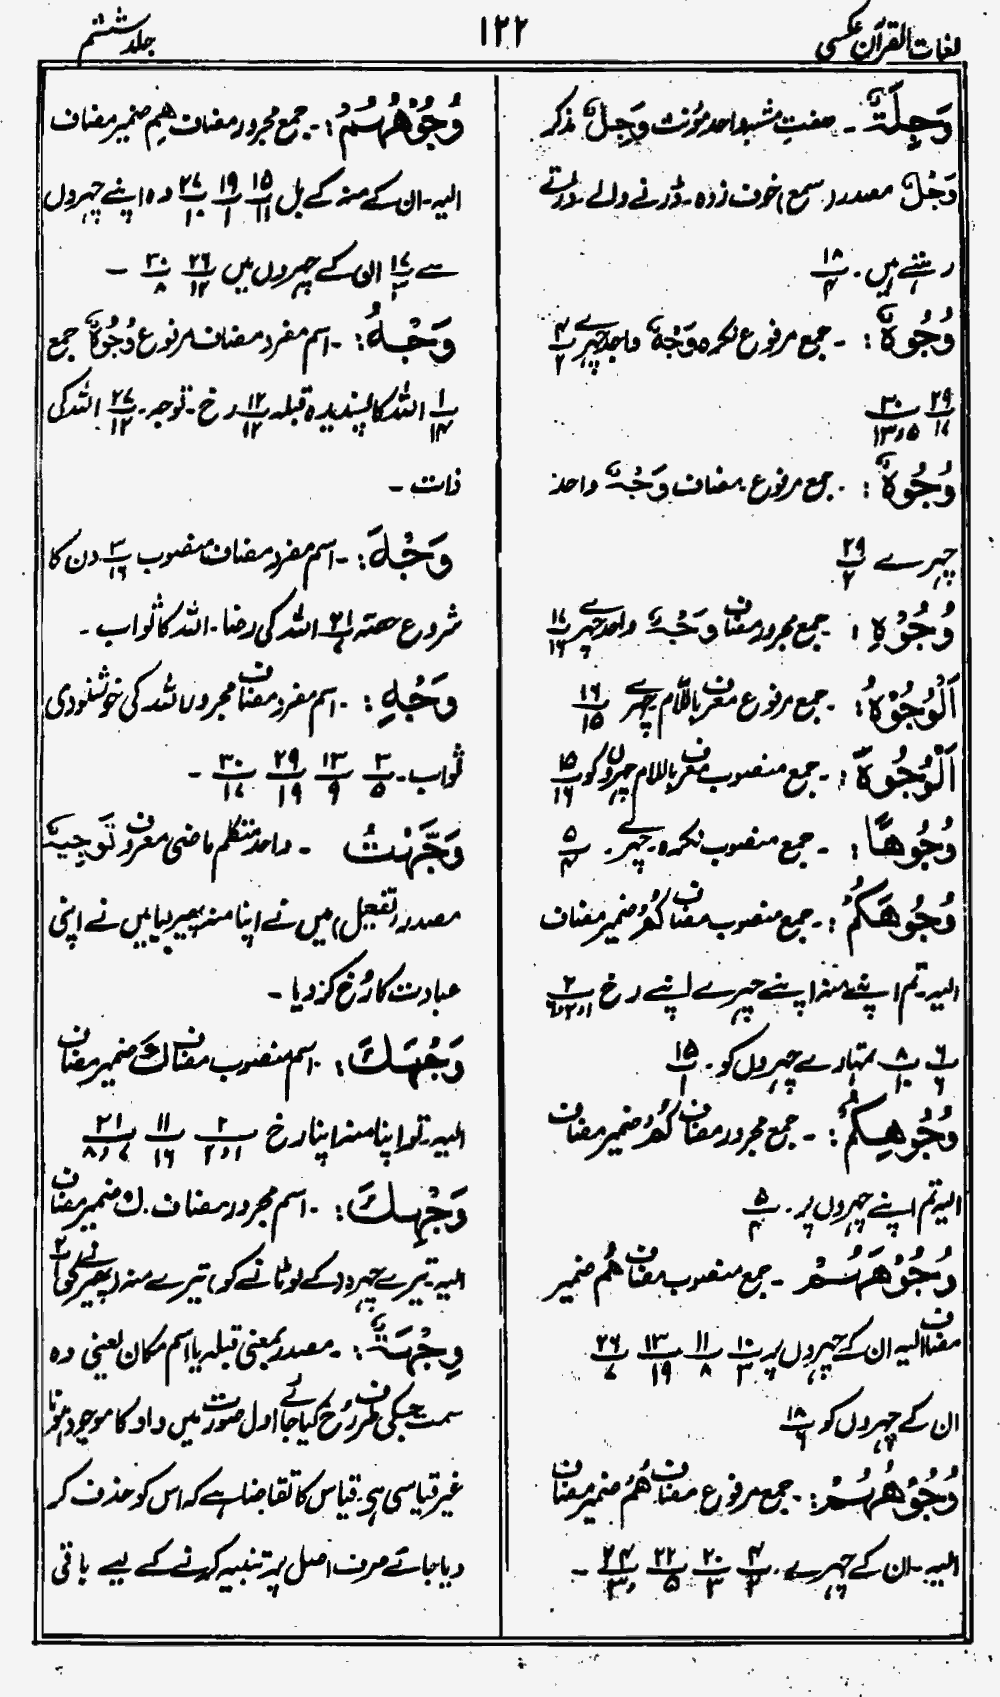 لغات القرآن عکسی
۱۲۲
جلد ششم
وَجِلَةٌ ۔ صفت مشبہ واحد مؤنث وَجِلٌ مذکر
وَجَلٌ مصدر (سمع) خوف زدہ ۔ ڈرنے والے ۔ ڈرتے
رہتے ہیں ۔ ۱۸/۴
وُجُوهٌ : ۔ جمع مرفوع نکرہ وَجْهٌ واحد چہرے ۴/۲
۲۹/۱۷ ۳۰/۱۳،۵
وُجُوهٌ : ۔ جمع مرفوع مضاف وَجْهٌ واحد
چہرے ۲۹/۲
وُجُوْهِ : جمع مجرور مضاف وَجْهٌ واحد چہرے ۱۷/۱۶
اَلْوُجُوْهُ : ۔ جمع مرفوع معرف باللام چہرے ۱۶/۱۵
اَلْوُجُوهَ : ۔ جمع منصوب معرف باللام چہروں کو ۱۵/۱۶
وُجُوهًا : ۔ جمع منصوب نکرہ ۔ چہرے ۔ ۵/۴
وُجُوهَكُمْ : ۔ جمع منصوب مضاف كُمْ ضمیر مضاف
الیہ ۔ تم اپنے منہ اپنے چہرے اپنے رخ ۲/۱،۲،۶
۶/۶ ۸/۱۰ تمہارے چہروں کو ۔ ۱۵/۱
وُجُوهِكُمْ : ۔ جمع مجرور مضاف كُمْ ضمیر مضاف
الیہ تم اپنے چہروں پر ۔ ۵/۴
وُجُوْهَهُمْ ۔ جمع منصوب مضاف هُمْ ضمیر
مضاف الیہ ان کے چہروں پر ۱۰/۳ ۱۱/۸ ۱۳/۱۹ ۲۶/۷
ان کے چہروں کو ۱۸/۶
وُجُوْهُهُمْ : ۔ جمع مرفوع مضاف هُمْ ضمیر مضاف
الیہ ۔ ان کے چہرے ۔ ۴/۲ ۲۰/۳ ۲۲/۵ ۲۴/۳،
وُجُوْهِهِمْ : ۔ جمع مجرور مضاف هِمْ ضمیر مضاف
الیہ ۔ ان کے منہ کے بل ۱۵/۱۱ ۱۹/۱ ۲۷/۱۰ وہ اپنے چہروں
سے ۱۷/۳ ان کے چہروں میں ۲۶/۱۲ ۳۰/۸ ۔
وَجْهُ : ۔ اسم مفرد مضاف مرفوع وُجُوْهٌ جمع
۱/۱۴ اللہ کا پسندیدہ قبلہ ۱۲/۱۲ رخ ۔ توجہ ۔ ۲۷/۱۲ اللہ کی
ذات ۔
وَجْهَ : ۔ اسم مفرد مضاف منصوب ۳/۱۶ دن کا
شروع حصہ ۲۱/۷ اللہ کی رضا ۔ اللہ کا ثواب ۔
وَجْهِ : ۔ اسم مفرد مضاف مجرور اللہ کی خوشنودی
ثواب ۔ ۳/۵ ۱۳/۹ ۲۹/۱۹ ۳۰/۱۷ ۔
وَجَّهْتُ ۔ واحد متکلم ماضی معروف تَوْجِیْهٌ
مصدر (تفعیل) میں نے اپنا منہ پھیر لیا میں نے اپنی
عبادت کا رُخ کر دیا ۔
وَجْهَكَ : ۔ اسم منصوب مضاف كَ ضمیر مضاف
الیہ ۔ تو اپنا منہ اپنا رخ ۲/۱،۲ ۱۱/۱۶ ۲۱/۷،۸
وَجْهِكَ : ۔ اسم مجرور مضاف ۔ كَ ضمیر مضاف
الیہ ۔ تیرے چہرہ (کے لوٹانے کو) تیرے منہ (پھیرنے کو) ۲/۱
وِجْهَةٌ : ۔ مصدر بمعنی قبلہ یا اسم مکان یعنی وہ
سمت جسکی طرف رُخ کیا جائے اول صورت میں واو کا موجود ہونا
غیر قیاسی ہے ۔ قیاس کا تقاضا ہے کہ اس کو حذف کر
دیا جائے صرف اصل پر تنبیہ کرنے کے لیے باقی